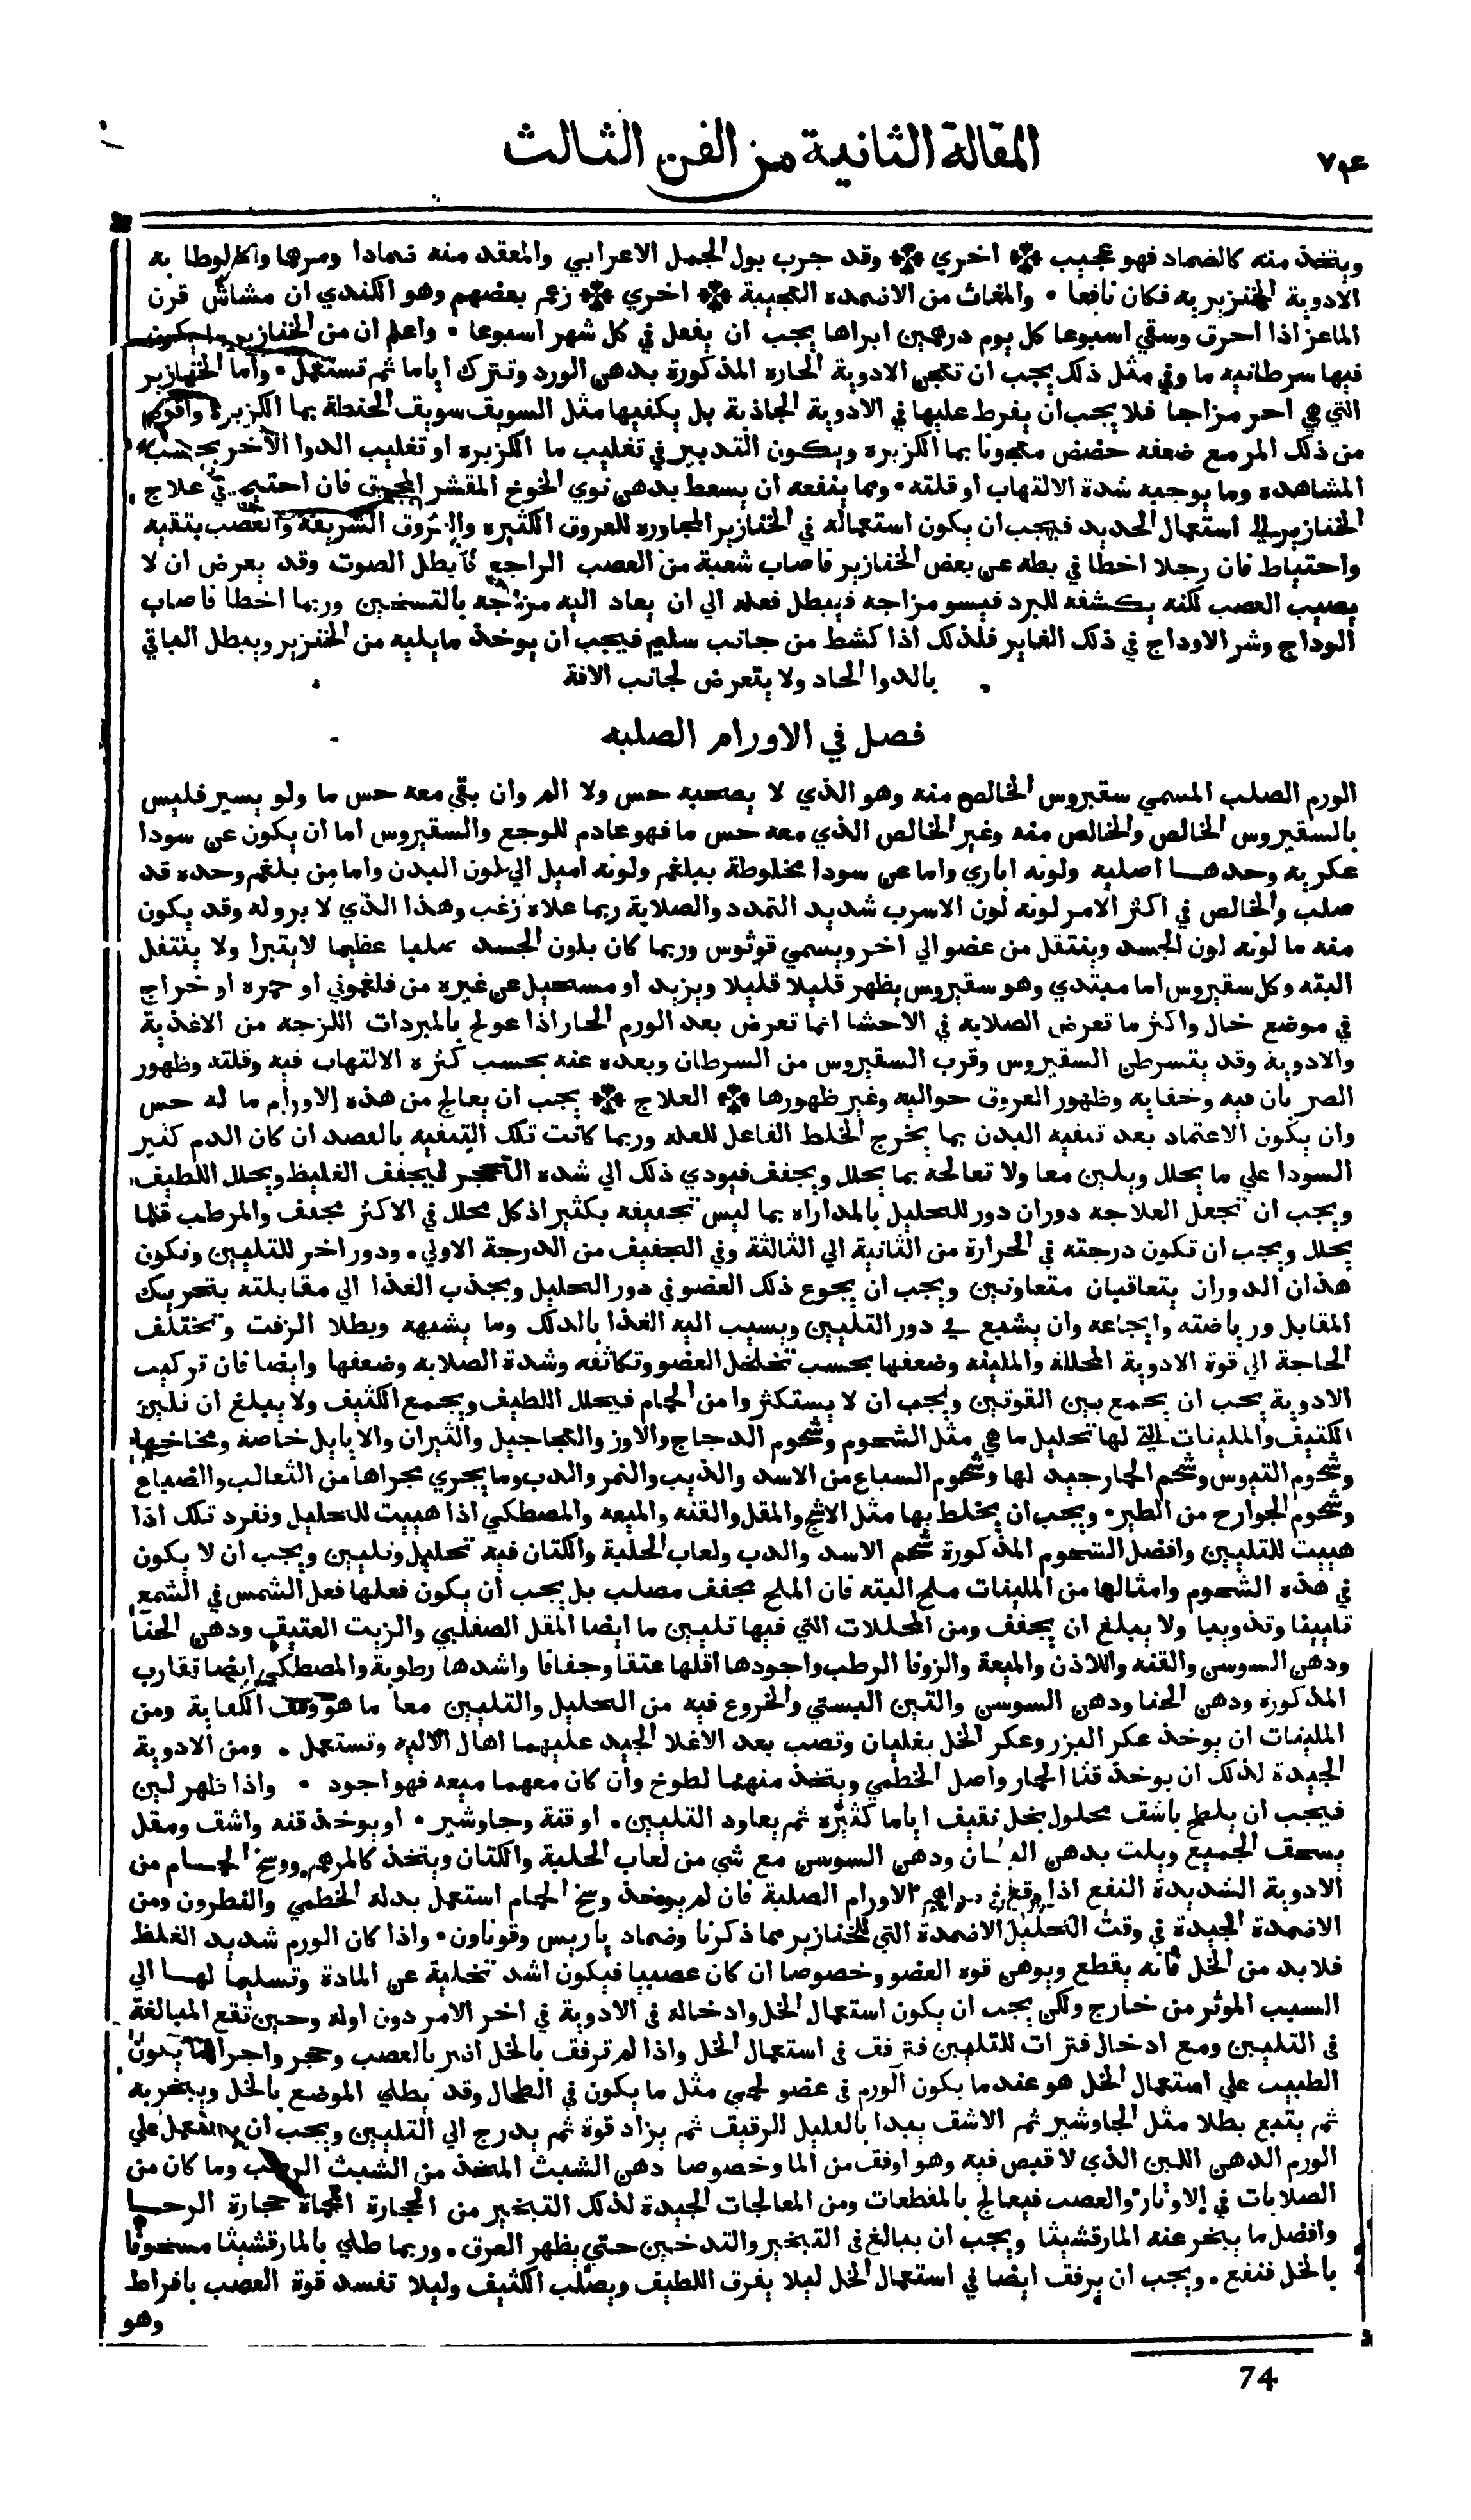 المقالة الثانية من الفن الثالث
٧٤
ويتخذ منه كالضماد فهو عجيب ※ اخري ※ وقد جرب بول الجمل الاعرابي والمعقد منه ضمادا ومرهما ومخلوطا به
الادوية الخنزيرية فكان نافعا • والمغاث من الاضمده العجيبة ※ اخري ※ زعم بعضهم وهو الكندي ان مشاش قرن
الماعز اذا احرق وسقي اسبوعا كل يوم درهمين ابراها يجب ان يفعل في كل شهر اسبوعا • واعلم ان من الخنازير ما يكون
فيها سرطانيه ما وفي مثل ذلك يجب ان تعجن الادوية الحاره المذكورة بدهن الورد وتترك اياما ثم تستعمل • واما الخنازير
التي هي احر مزاجا فلا يجب ان يفرط عليها في الادوية الجاذبة بل يكفيها مثل السويق سويق الحنطة بما الكزبره واقوي
من ذلك المر مع ضعفه حضض معجونا بما الكزبره ويكون التدبير في تغليب ما الكزبره او تغليب الدوا الآخر بحسب
المشاهده وما يوجبه شدة الالتهاب او قلته • ومما ينفعه ان يسعط بدهن نوي الخوخ المقشر فان احتيج في علاج
الخنازير الي استعمال الحديد فيجب ان يكون استعماله في الخنازير المجاوره للعروق الكثيره والعروق الشريفة والعصب بتقيه
واحتياط فان رجلا اخطا في بطه عن بعض الخنازير فاصاب شعبة من العصب الراجع فابطل الصوت وقد يعرض ان لا
يصيب العصب لكنه يكشفه للبرد فيسو مزاجه فيبطل فعله الي ان يعاد اليه مزاجه بالتسخين وربما اخطا فاصاب
الوداج وشر الاوداج في ذلك الغاير فلذلك اذا كشط من جانب سليم فيجب ان يوخذ مايليه من الخنزير ويبطل الباقي
بالدوا الحاد ولا يتعرض لجانب الافة
فصل في الاورام الصلبه
الورم الصلب المسمي سقيروس الخالص منه وهو الذي لا يصحبه حس ولا الم وان بقي معه حس ما ولو يسير فليس
بالسقيروس الخالص والخالص منه وغير الخالص الذي معه حس ما فهو عادم للوجع والسقيروس اما ان يكون عن سودا
عكريه وحدها اصليه ولونه اباري واما عن سودا مخلوطة ببلغم ولونه اميل الي لون البدن واما من بلغم وحده قد
صلب والخالص في اكثر الامر لونه لون الاسرب شديد التمدد والصلابة ربما علاه زغب وهذا الذي لا بروله وقد يكون
منه ما لونه لون الجسد وينتقل من عضو الي اخر ويسمي قوثوس وربما كان بلون الجسد صلبا عظيما لايتبرا ولا ينتقل
البته وكل سقيروس اما مبتدي وهو سقيروس يظهر قليلا قليلا ويزيد او مستحيل عن غيره من فلغموني او حمره او خراج
في موضع خال واكثر ما تعرض الصلابه في الاحشا انما تعرض بعد الورم الحار اذا عولج بالمبردات اللزجه من الاغذية
والادوية وقد يتسرطن السقيروس وقرب السقيروس من السرطان وبعده عنه بحسب كثره الالتهاب فيه وقلته وظهور
الضربان فيه وخفايه وظهور العروق حواليه وغير ظهورها ※ العلاج ※ يجب ان يعالج من هذه الاورام ما له حس
وان يكون الاعتماد بعد تنقيه البدن بما يخرج الخلط الفاعل للعله وربما كانت تلك التنقيه بالفصد ان كان الدم كثير
السودا علي ما يحلل ويلين معا ولا تعالجه بما يحلل ويجفف فيودي ذلك الي شده التحجر ليجفف الغليظ ويحلل اللطيف
ويجب ان تجعل العلاجه دوران دور للتحليل بالمداراه بما ليس تجفيفه بكثير اذ كل محلل في الاكثر مجفف والمرطب قلما
يحلل ويجب ان تكون درجته في الحرارة من الثانية الي الثالثة وفي التجفيف من الدرجة الاولي • ودور اخر للتليين وتكون
هذان الدوران يتعاقبان متعاونين ويجب ان يجوع ذلك العضو في دور التحليل ويجذب الغذا الي مقابلته بتحريك
المقابل ورياضته وايجاعه وان يشبع في دور التليين ويسيب اليه الغذا بالدلك وما يشبهه وبطلا الزفت وتختلف
الحاجة الي قوة الادوية المحللة والملينه وضعفها بحسب تخلخل العضو وتكاثفه وشدة الصلابه وضعفها وايضا فان تركيب
الادوية يجب ان يجمع بين القوتين ويجب ان لا يستكثروا من الحمام فيحلل اللطيف ويجمع الكثيف ولا يبلغ ان تليين
الكثيف والملينات التي لها تحليل ما هي مثل الشحوم وشحوم الدجاج والاوز والعجاجيل والثيران والايايل خاصة ومخاخها
وشحوم التيوس وشحم الحمار جيد لها وشحوم السباع من الاسد والذيب والنمر والدب وما يجري مجراها من الثعالب والضباع
وشحوم الجوارح من الطير • ويجب ان يخلط بها مثل الاشج والمقل والقنه والميعه والمصطكي اذا هييت للتحليل وتفرد تلك اذا
هييت للتليين وافضل الشحوم المذكورة شحم الاسد والدب ولعاب الحلبة والكتان فيه تحليل وتليين ويجب ان لا يكون
في هذه الشحوم وامثالها من الملينات ملح البته فان الملح مجفف مصلب بل يجب ان يكون فعلها فعل الشمس في الشمع
تليينا وتذويبا ولا يبلغ ان يجفف ومن المحللات التي فيها تليين ما ايضا المقل الصقلبي والزيت العتيق ودهن الحنا
ودهن السوسن والقنه واللاذن والميعة والزوفا الرطب واجودها اقلها عتقا وجفافا واشدها رطوبة والمصطكي ايضا تقارب
المذكوره ودهن الحنا ودهن السوسن والتين البستي والخروع فيه من التحليل والتليين معا ما هو الكفاية ومن
الملينات ان يوخذ عكر البزر وعكر الخل يغليان وتصب بعد الاغلا الجيد عليهما اهال الاليه وتستعمل • ومن الادوية
الجيدة لذلك ان يوخذ قثا الحمار واصل الخطمي ويتخذ منهما لطوخ وان كان معهما ميعه فهو اجود • واذا ظهر لين
فيجب ان يلطخ باشق محلول بخل ثقيف اياما كثيره ثم يعاود التليين • او قنة وجاوشير • او يوخذ قنه واشق ومقل
يسحق الجميع ويلت بدهن البان ودهن السوسن مع شي من لعاب الحلبة والكتان ويتخذ كالمرهم ووسخ الحمام من
الادوية الشديدة النفع اذا وقع في مراهم الاورام الصلبة فان لم يوخذ وسخ الحمام استعمل بدله الخطمي والنطرون ومن
الاضمدة الجيدة في وقت التحليل الاضمدة التي للخنازير مما ذكرنا وضماد باريس وقوناون • واذا كان الورم شديد الغلظ
فلا بد من الخل فانه يقطع ويوهن قوه العضو وخصوصا ان كان عصبيا فيكون اشد تخلية عن المادة وتسليما لها الي
السبب الموثر من خارج ولكن يجب ان يكون استعمال الخل وادخاله في الادوية في اخر الامر دون اوله وحين تقع المبالغة
في التليين ومع ادخال فترات للتليين فترفق في استعمال الخل واذا لم ترفق بالخل اضر بالعصب وحجر واجرا ما يكون
الطبيب علي استعمال الخل هو عندما يكون الورم في عضو لحمي مثل ما يكون في الطحال وقد يطلي الموضع بالخل ويبخر به
ثم يتبع بطلا مثل الجاوشير ثم الاشق يبدا بالقليل الرقيق ثم يزاد قوة ثم يدرج الي التليين ويجب ان يستعمل علي
الورم الدهن اللين الذي لا قبض فيه وهو اوفق من الما وخصوصا دهن الشبث المتخذ من الشبث الرطب وما كان من
الصلابات في الاوتار والعصب فيعالج بالمقطعات ومن المعالجات الجيدة لذلك التبخير من الحجارة المحماة حجارة الرحا
وافضل ما يبخر عنه المارقشيثا ويجب ان يبالغ في التبخير والتدخين حتي يظهر العرق • وربما طلي بالمارقشيثا مسحوقا
بالخل فنفع • ويجب ان يرفق ايضا في استعمال الخل ليلا يفرق اللطيف ويصلب الكثيف وليلا تفسد قوة العصب بافراط
وهو
74